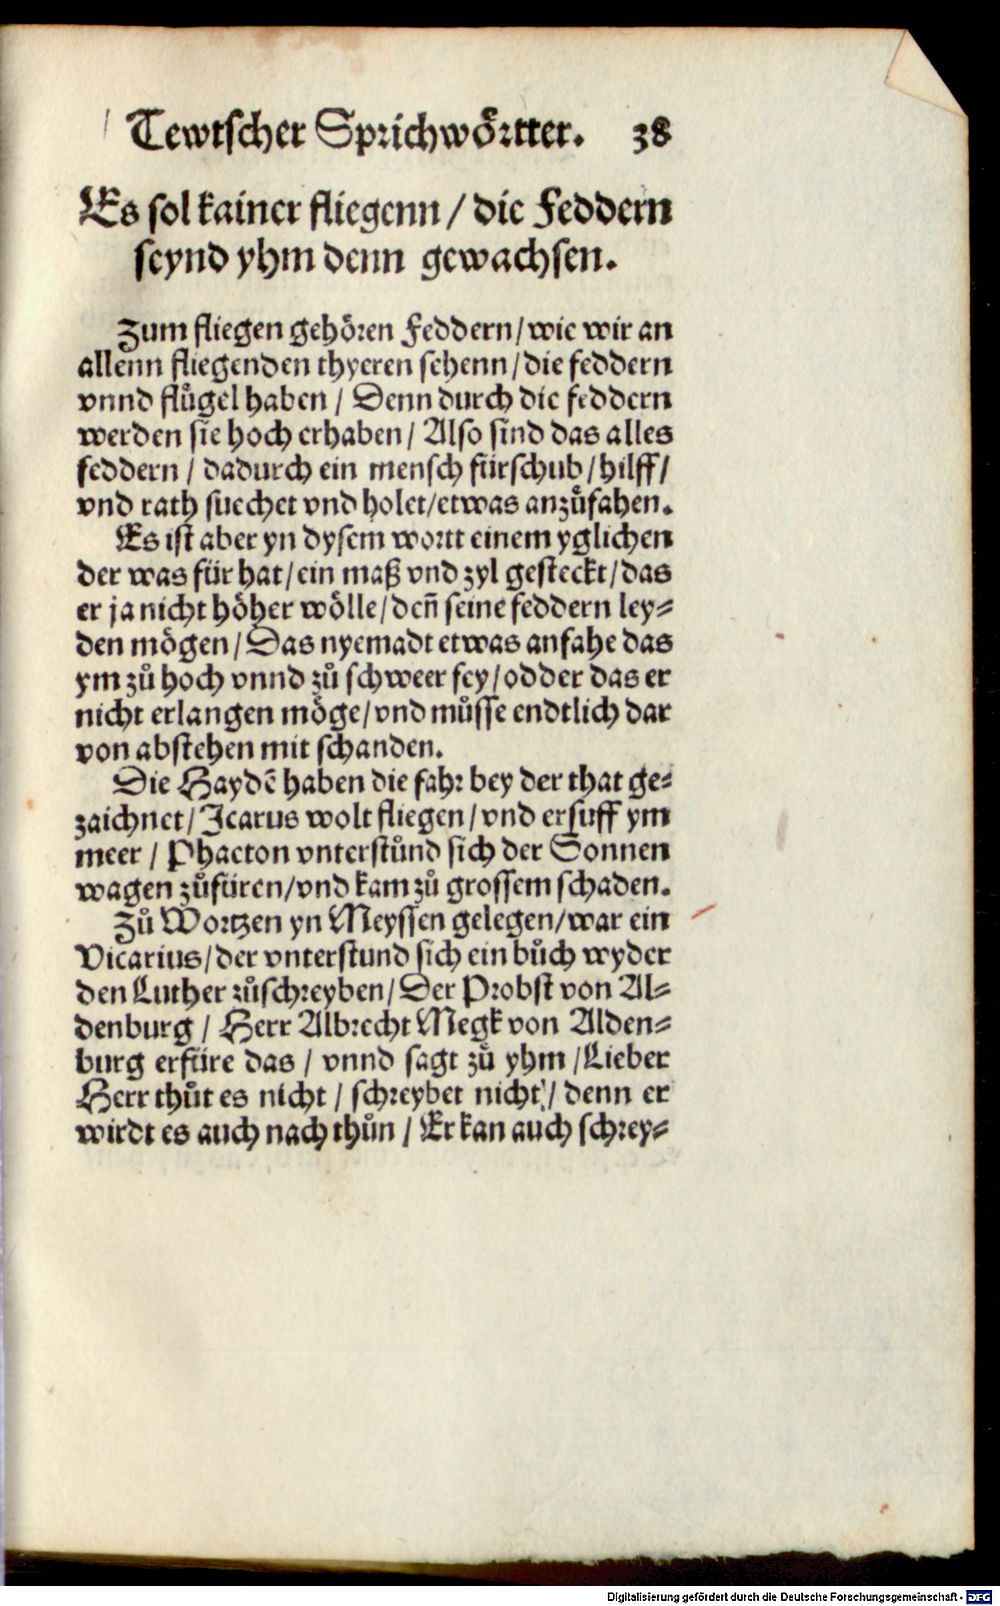 Tewtscher Sprichwoͤrtter. 38
Es sol kainer fliegenn / die Feddern
seynd yhm denn gewachsen.
Zum fliegen gehoͤren Feddern / wie wir an
allenn fliegenden thyeren sehenn / die feddern
vnnd fluͤgel haben / Denn durch die feddern
werden sie hoch erhaben / Also sind das alles
feddern / dadurch ein mensch fürschub / hilff /
vnd rath suechet vnd holet / etwas anzůfahen.
Es ist aber yn dysem wortt einem yglichen
der was für hat / ein maß vnd zyl gesteckt / das
er ja nicht hoͤher woͤlle / deñ seine feddern ley⸗
den moͤgen / Das nyemadt etwas anfahe das
ym zů hoch vnnd zů schweer sey / odder das er
nicht erlangen moͤge / vnd můsse endtlich dar
von abstehen mit schanden.
Die Haydẽ haben die fahr bey der that ge⸗
zaichnet / Icarus wolt fliegen / vnd ersuff ym
meer / Phaeton vnterstůnd sich der Sonnen
wagen zůfüren / vnd kam zů grossem schaden.
Zů Wortzen yn Meyssen gelegen / war ein
Vicarius / der vnterstund sich ein bůch wyder
den Luther zůschreyben / Der Probst von Al⸗
denburg / Herr Albrecht Megk von Alden⸗
burg erfüre das / vnnd sagt zů yhm / Lieber
Herr thůt es nicht / schreybet nicht / denn er
wirdt es auch nach thůn / Er kan auch schrey⸗
Digitalisierung gefördert durch die Deutsche Forschungsgemeinschaft - DFG